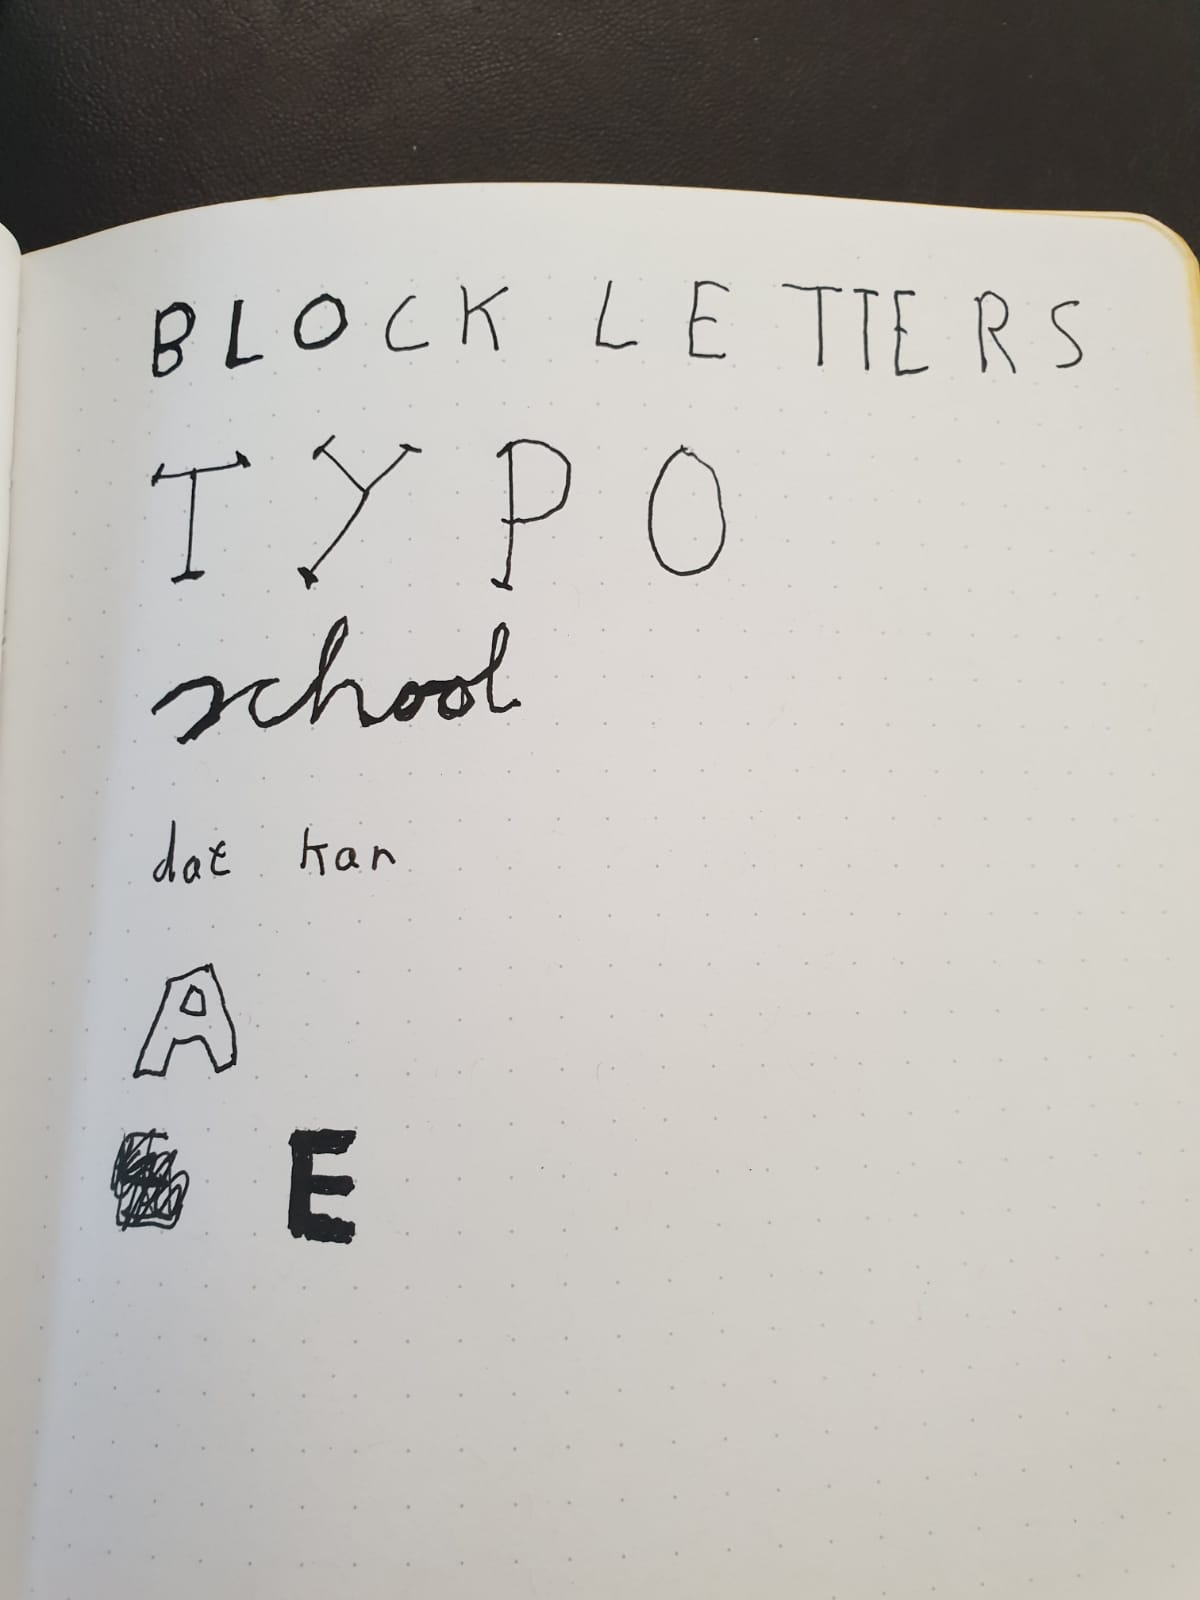 BLOCK LETTERS
TYPO
school
dat kan
A
E